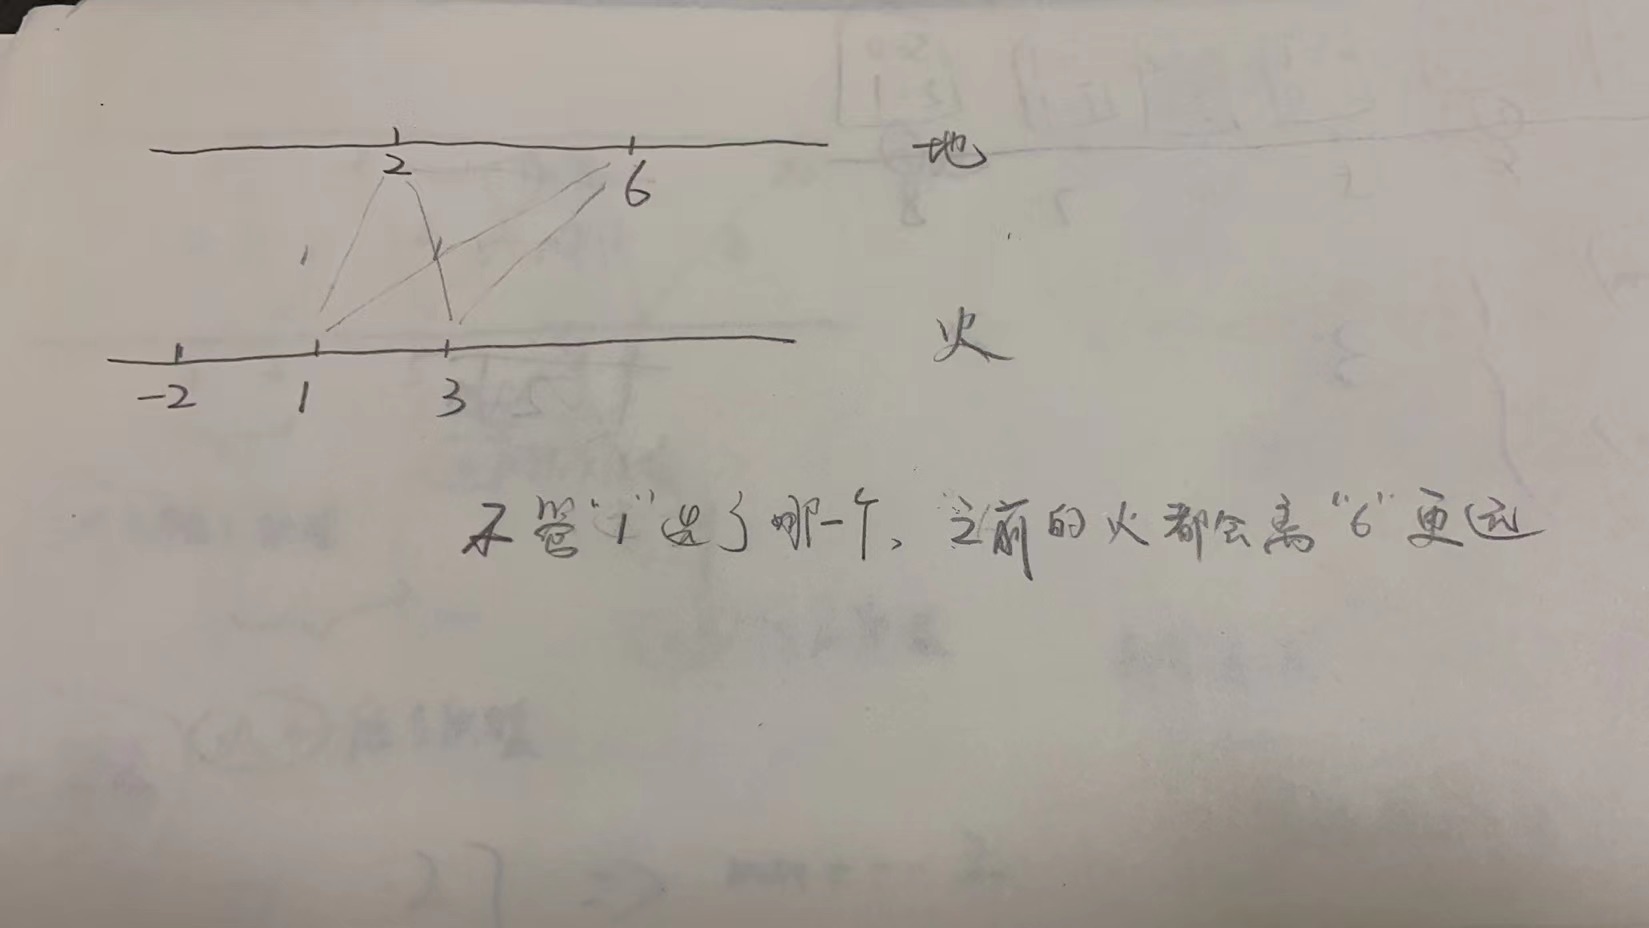 2 6 地
-2 1 3 火
不管“1”选了哪一个，之前的火都会离“6”更远